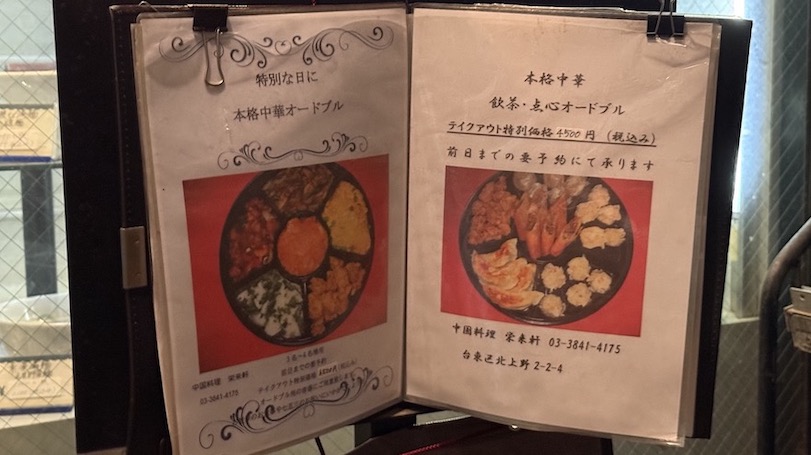 特別な日に
本格中華オードブル
中国料理 栄来軒
03-3841-4175
3名〜4名様用
前日までの要予約
テイクアウト特別価格
オードブル用の容器にご用意致します
本格中華
飲茶・点心オードブル
テイクアウト特別価格4500円 (税込み)
前日までの要予約にて承ります
中国料理 栄来軒 03-3841-4175
台東区北上野2-2-4